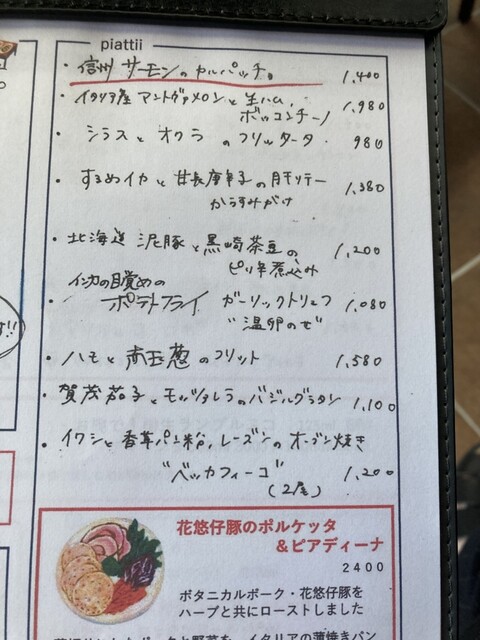 piattii
・信州サーモンのカルパッチョ 1,400
・イタリア産 アントヴァメロンと生ハム、
ボッコンチーノ 1,980
・シラスとオクラのフリッタータ 980
・するめイカと甘長唐辛子の肝ソテー 1,380
からすみがけ
・北海道 泥豚と黒崎茶豆の 1,200
ピリ辛煮込み
インカの目覚めの
・ポテトフライ ガーリックトリュフ 1,080
"温卵のせ"
・ハモと赤玉葱のフリット 1,580
・賀茂茄子とモッツァレラのバジルグラタン 1,100
・イワシと香草パン粉、レーズンのオーブン焼き
"ベッカフィーゴ" 1,200
(2尾)
花悠仔豚のポルケッタ
&ピアディーナ
2400
ボタニカルポーク・花悠仔豚を
ハーブと共にローストしました